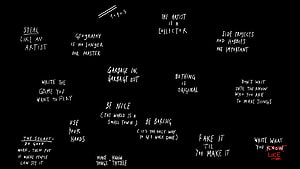 STEAL
LIKE AN
ARTIST
GEOGRAPHY
IS NO LONGER
OUR MASTER
THE ARTIST
IS A
COLLECTOR
SIDE PROJECTS
AND HOBBIES
ARE IMPORTANT
WRITE THE
BOOK YOU
WANT TO READ
GARBAGE IN,
GARBAGE OUT
NOTHING
IS
ORIGINAL
DON'T WAIT
UNTIL YOU KNOW
WHO YOU ARE
TO MAKE THINGS
BE NICE
(THE WORLD IS A
SMALL TOWN.)
USE
YOUR
HANDS
BE BORING
(IT'S THE ONLY WAY
TO GET WORK DONE)
THE SECRET:
DO GOOD
WORK, THEN PUT
IT WHERE PEOPLE
CAN SEE IT
FAKE IT
'TIL
YOU MAKE IT
WRITE WHAT
YOU KNOW
LIKE